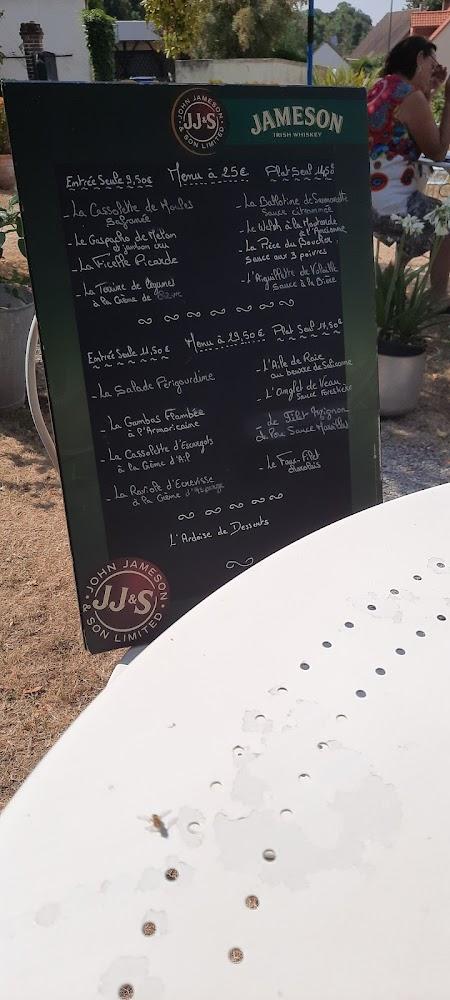 JOHN JAMESON
JJ&S
& SON LIMITED
JAMESON
IRISH WHISKEY
Entrée Seule 9,50€ Menu à 25€ Plat Seul
- La Cassolette de Moules
Safranée
- Le Gaspacho de Melon
et jambon cru
- La Ficelle Picarde
- La Terrine de légumes
à la Crème de
- La Ballotine de
Sauce citronnée
- Le Welsh à la Moutarde
à l'Ancienne
- La Pièce du Boucher
Sauce aux 3 poivres
- L'Aiguillette de Volaille
Sauce à la Bière
Entrée Seule 11,50€ Menu à 29,50€ Plat Seul 17,50€
- La Salade Périgourdine
- La Gambas Flambée
à l'Armoricaine
- La Cassolette d'Escargots
à la Crème d'Ail
- La Raviole d'Ecrevisse
à la Crème d'Asperge
- L'Aile de Raie
au beurre de Salicorne
- L'Onglet de Veau
Sauce Forestière
- Le Filet Mignon
de Porc Sauce
- Le Faux-Filet
charolais
L'Ardoise de Desserts
JOHN JAMESON
JJ&S
& SON LIMITED